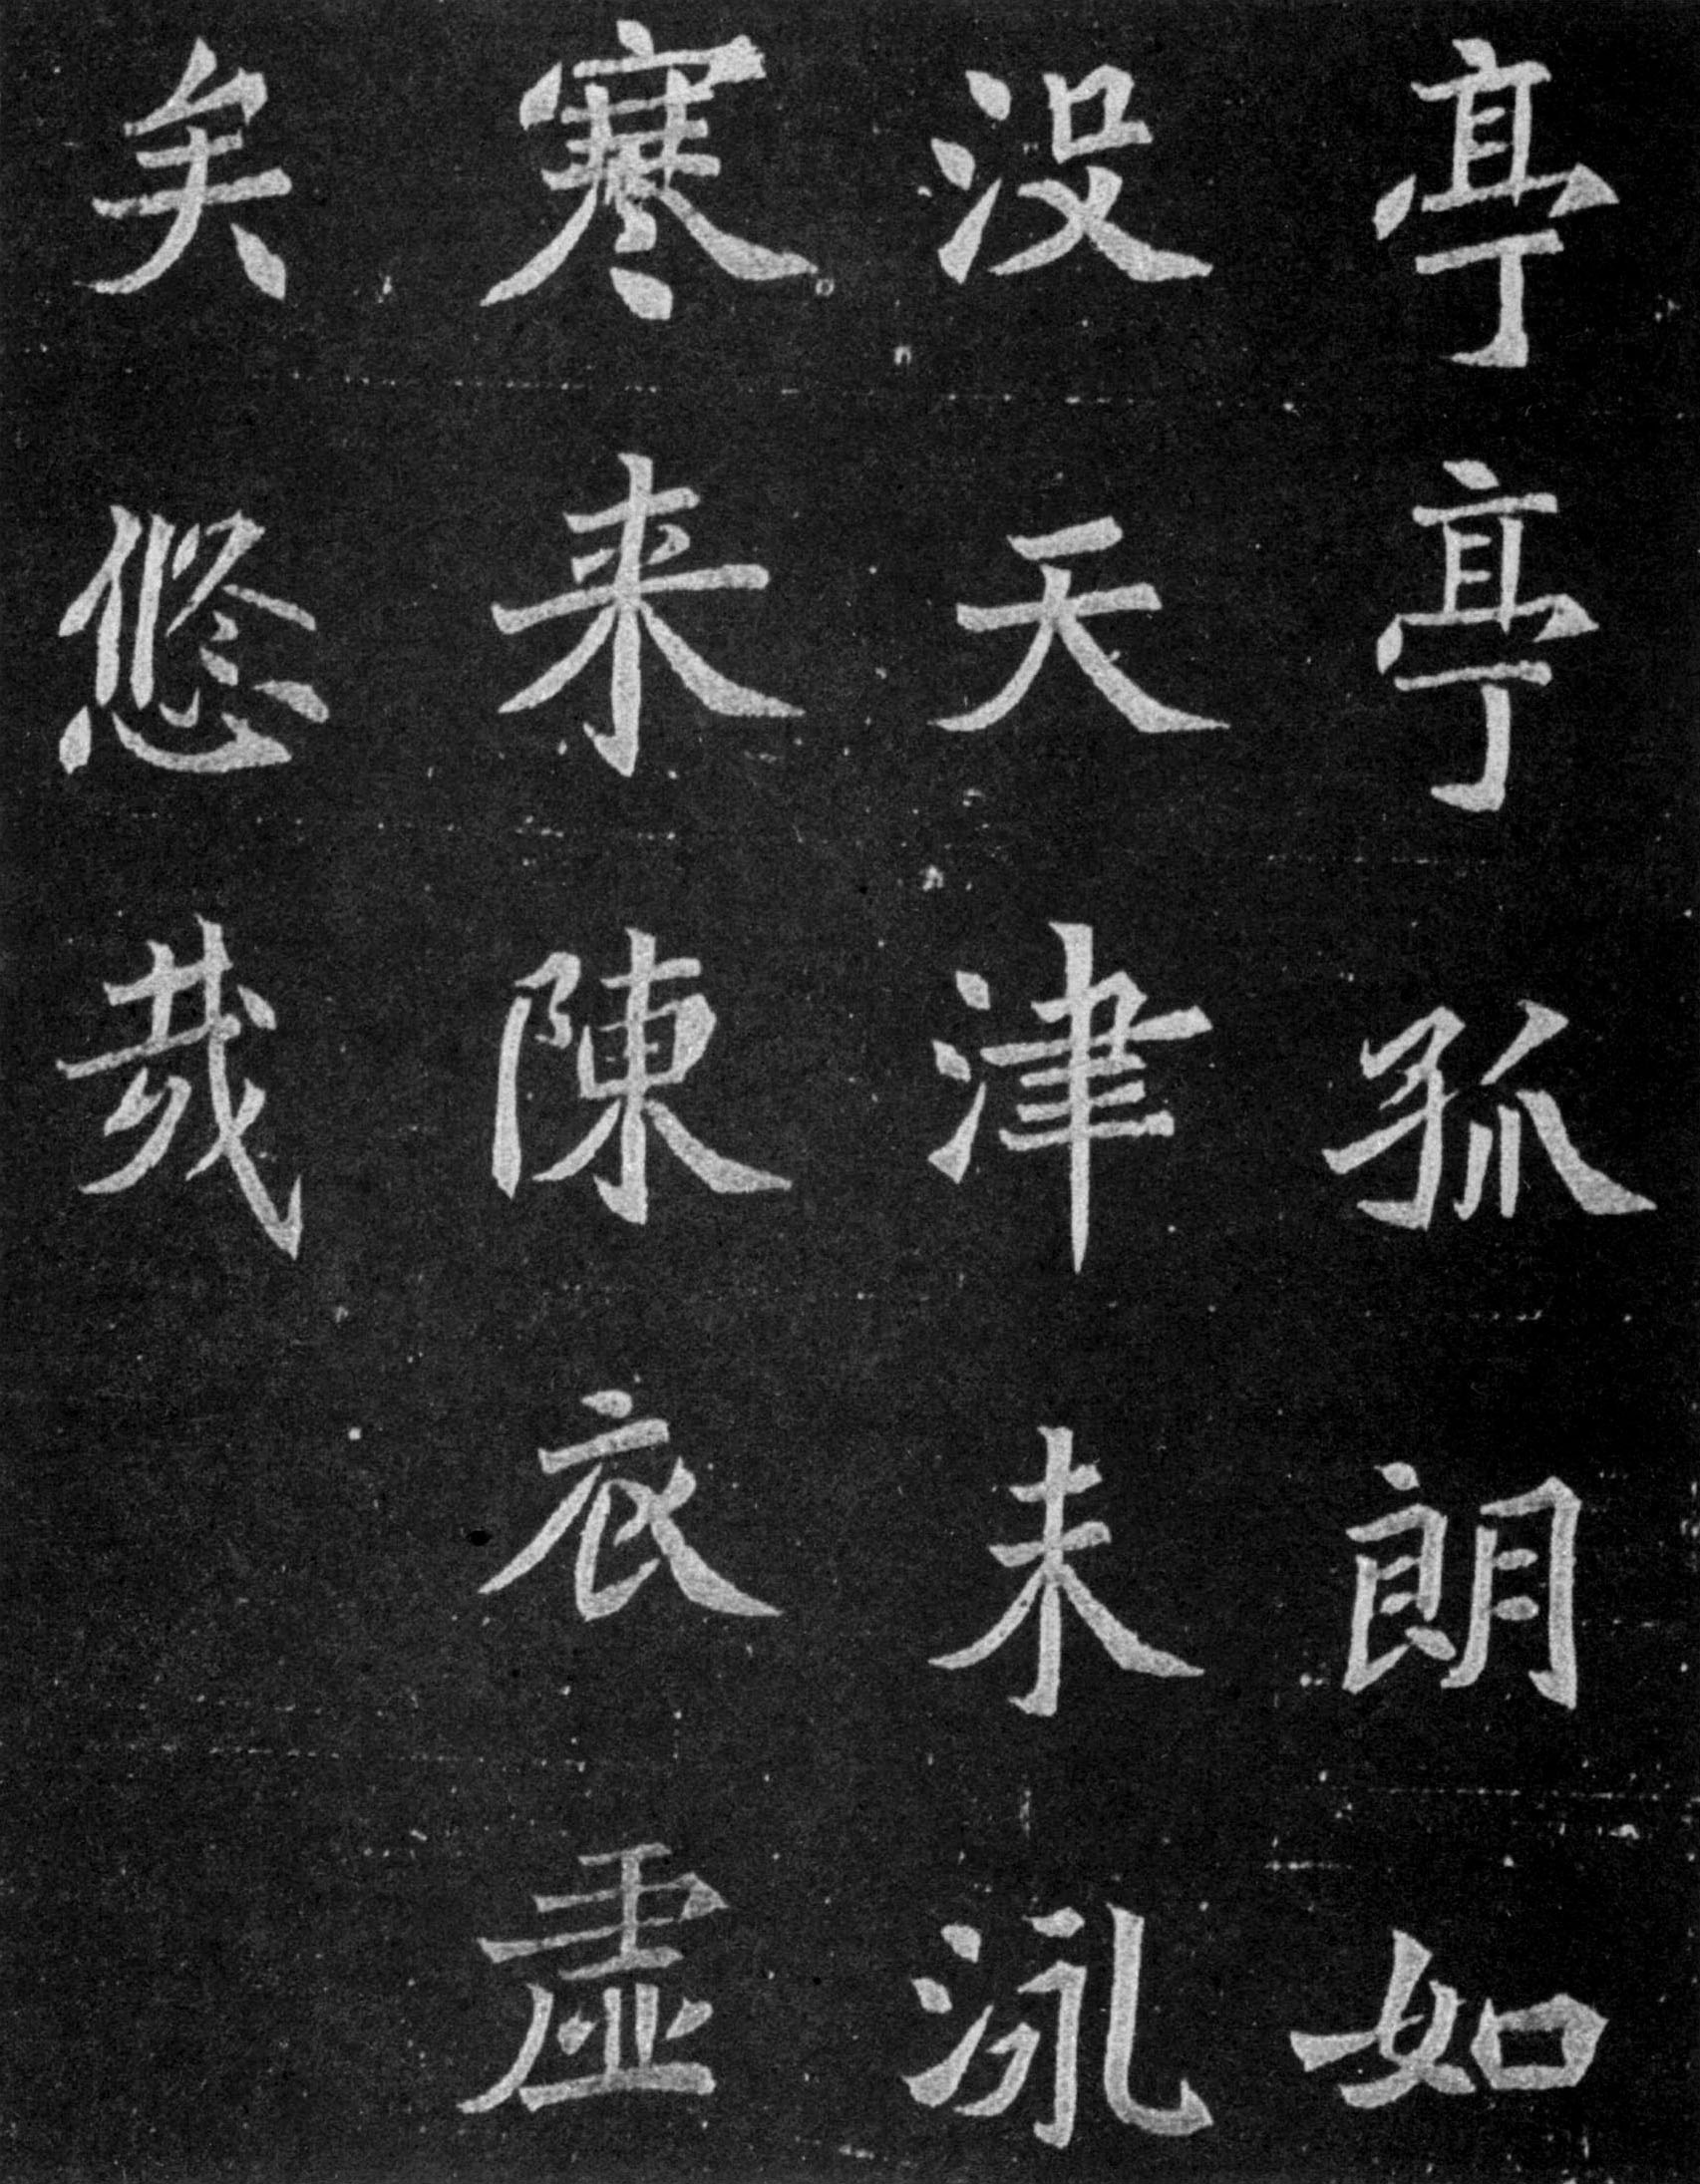 亭亭孤朗如
没天津未泳
寒来陳衣虛
矣悠哉